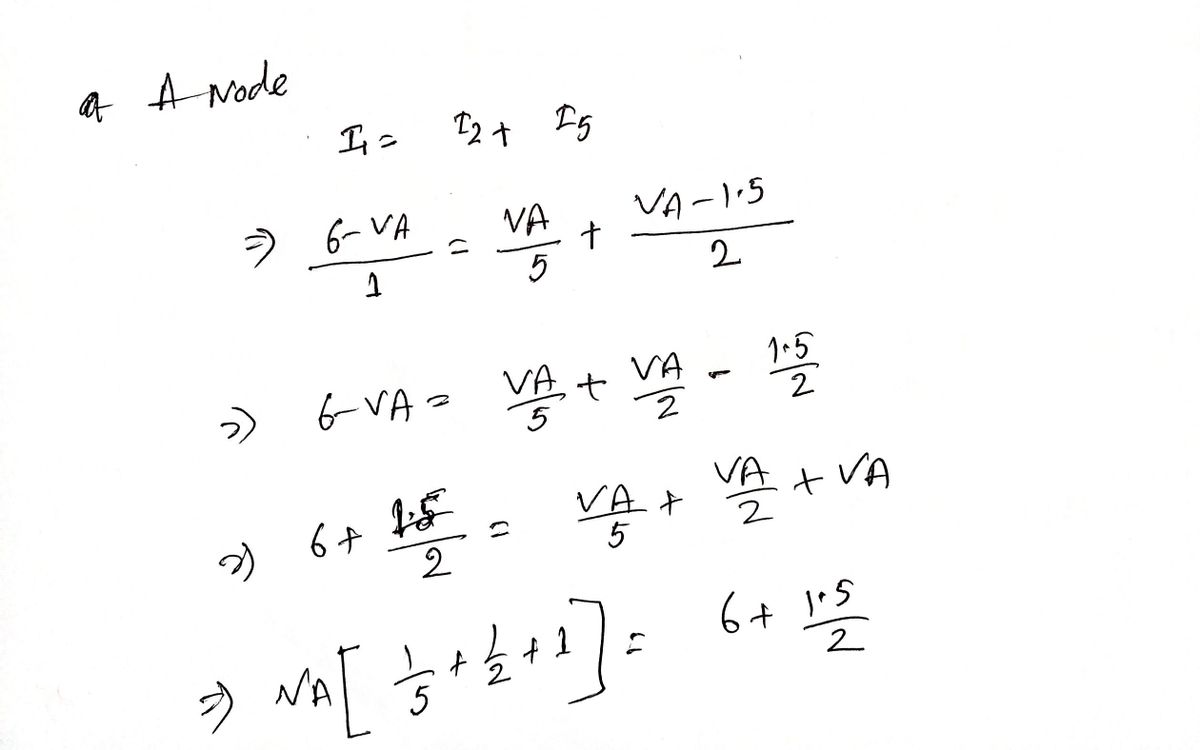 at A Node
I1 = I2 + I5
⇒ 6-VA/1 = VA/5 + VA-1.5/2
⇒ 6-VA = VA/5 + VA/2 - 1.5/2
⇒ 6+ 1.5/2 = VA/5 + VA/2 + VA
⇒ VA[ 1/5 + 1/2 + 1 ] = 6+ 1.5/2